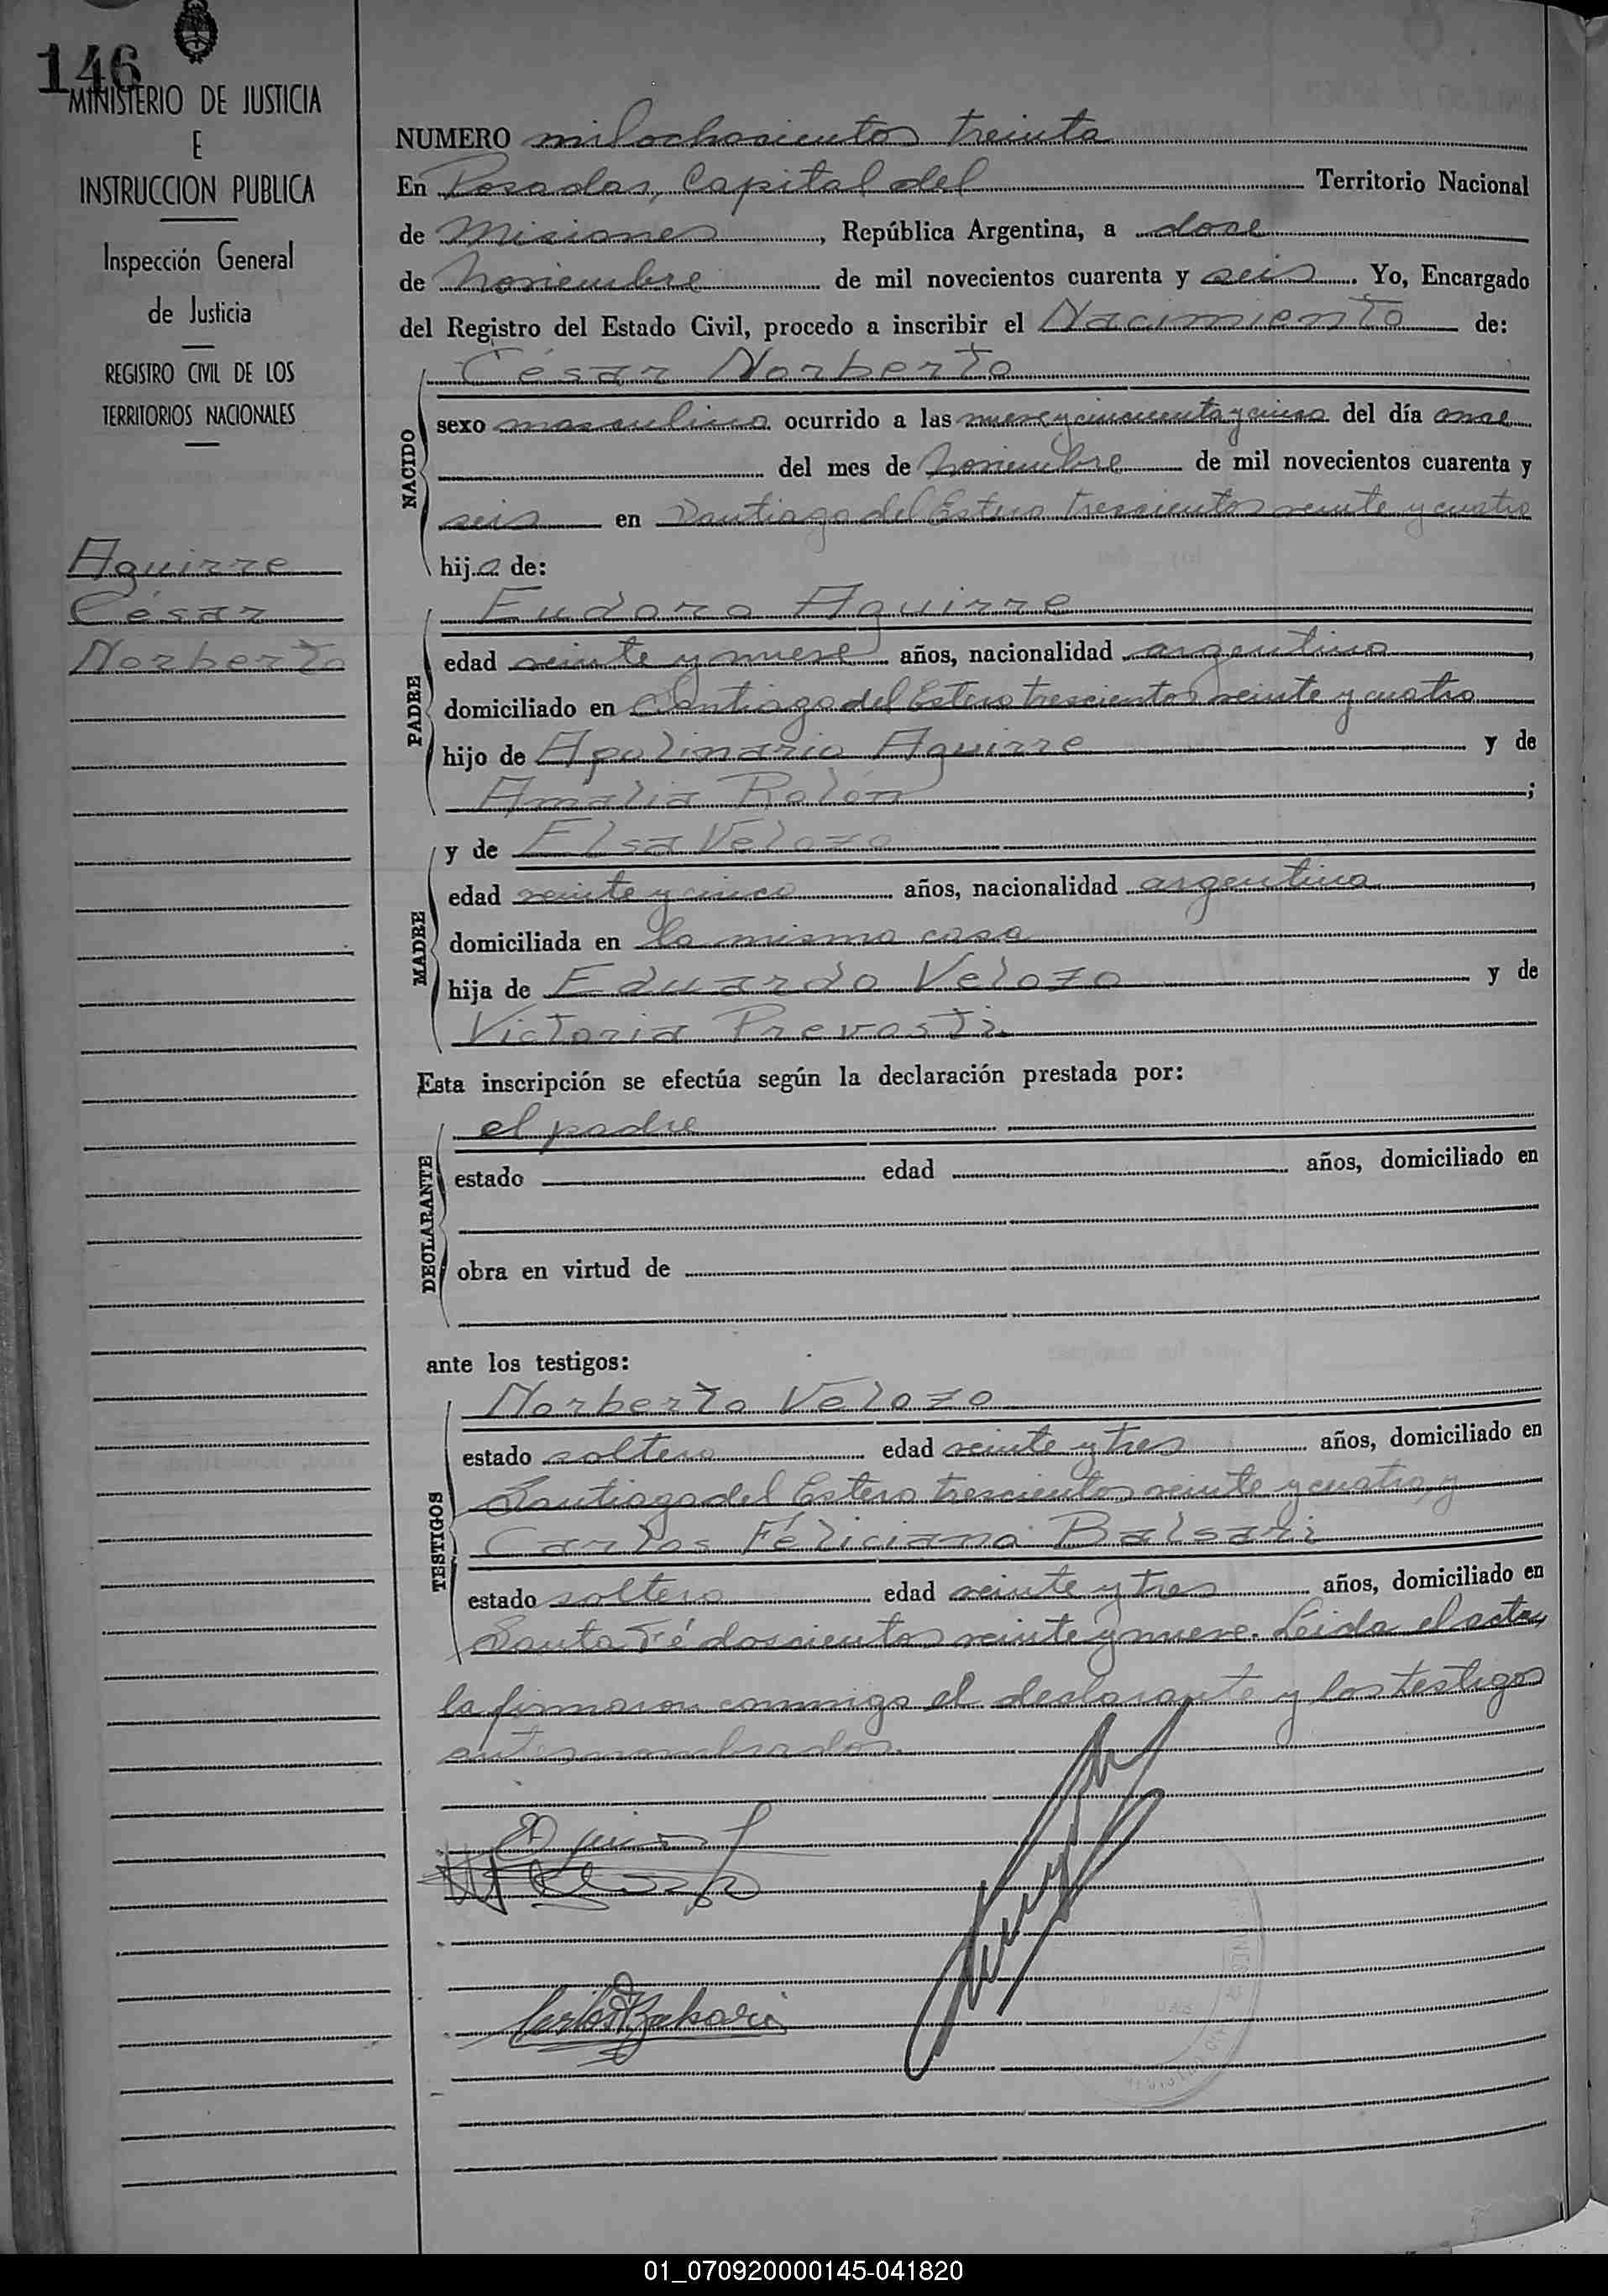 146
MINISTERIO DE JUSTICIA
E
INSTRUCCION PUBLICA
Inspección General
de Justicia
REGISTRO CIVIL DE LOS
TERRITORIOS NACIONALES
Aguirre
César
Norberto
NUMERO milochocientos treinta
En Posadas, Capital del Territorio Nacional
de Misiones, República Argentina, a doce
de noviembre de mil novecientos cuarenta y seis. Yo, Encargado
del Registro del Estado Civil, procedo a inscribir el Nacimiento de:
César Norberto
NACIDO
sexo masculino ocurrido a las nueve y cincuenta y cinco del día once
del mes de noviembre de mil novecientos cuarenta y
seis en Santiago del Estero trescientos veinte y cuatro
hijo de:
Eudoro Aguirre
PADRE
edad veinte y nueve años, nacionalidad argentino,
domiciliado en Santiago del Estero trescientos veinte y cuatro
hijo de Apolinario Aguirre y de
Amalia Rolón;
y de Elsa Velozo
MADRE
edad veinte y cinco años, nacionalidad argentina,
domiciliada en la misma casa
hija de Eduardo Velozo y de
Victoria Prevosti
Esta inscripción se efectúa según la declaración prestada por:
el padre
DECLARANTE
estado edad años, domiciliado en
obra en virtud de
ante los testigos:
Norberto Velozo
TESTIGOS
estado soltero edad veinte y tres años, domiciliado en
Santiago del Estero trescientos veinte y cuatro, y
Carlos Féliciano Balsari
estado soltero edad veinte y tres años, domiciliado en
Santa Fé doscientos veinte y nueve. Leida el acta,
la firmaron conmigo el declarante y los testigos
antesnombrados.
01_070920000145-041820